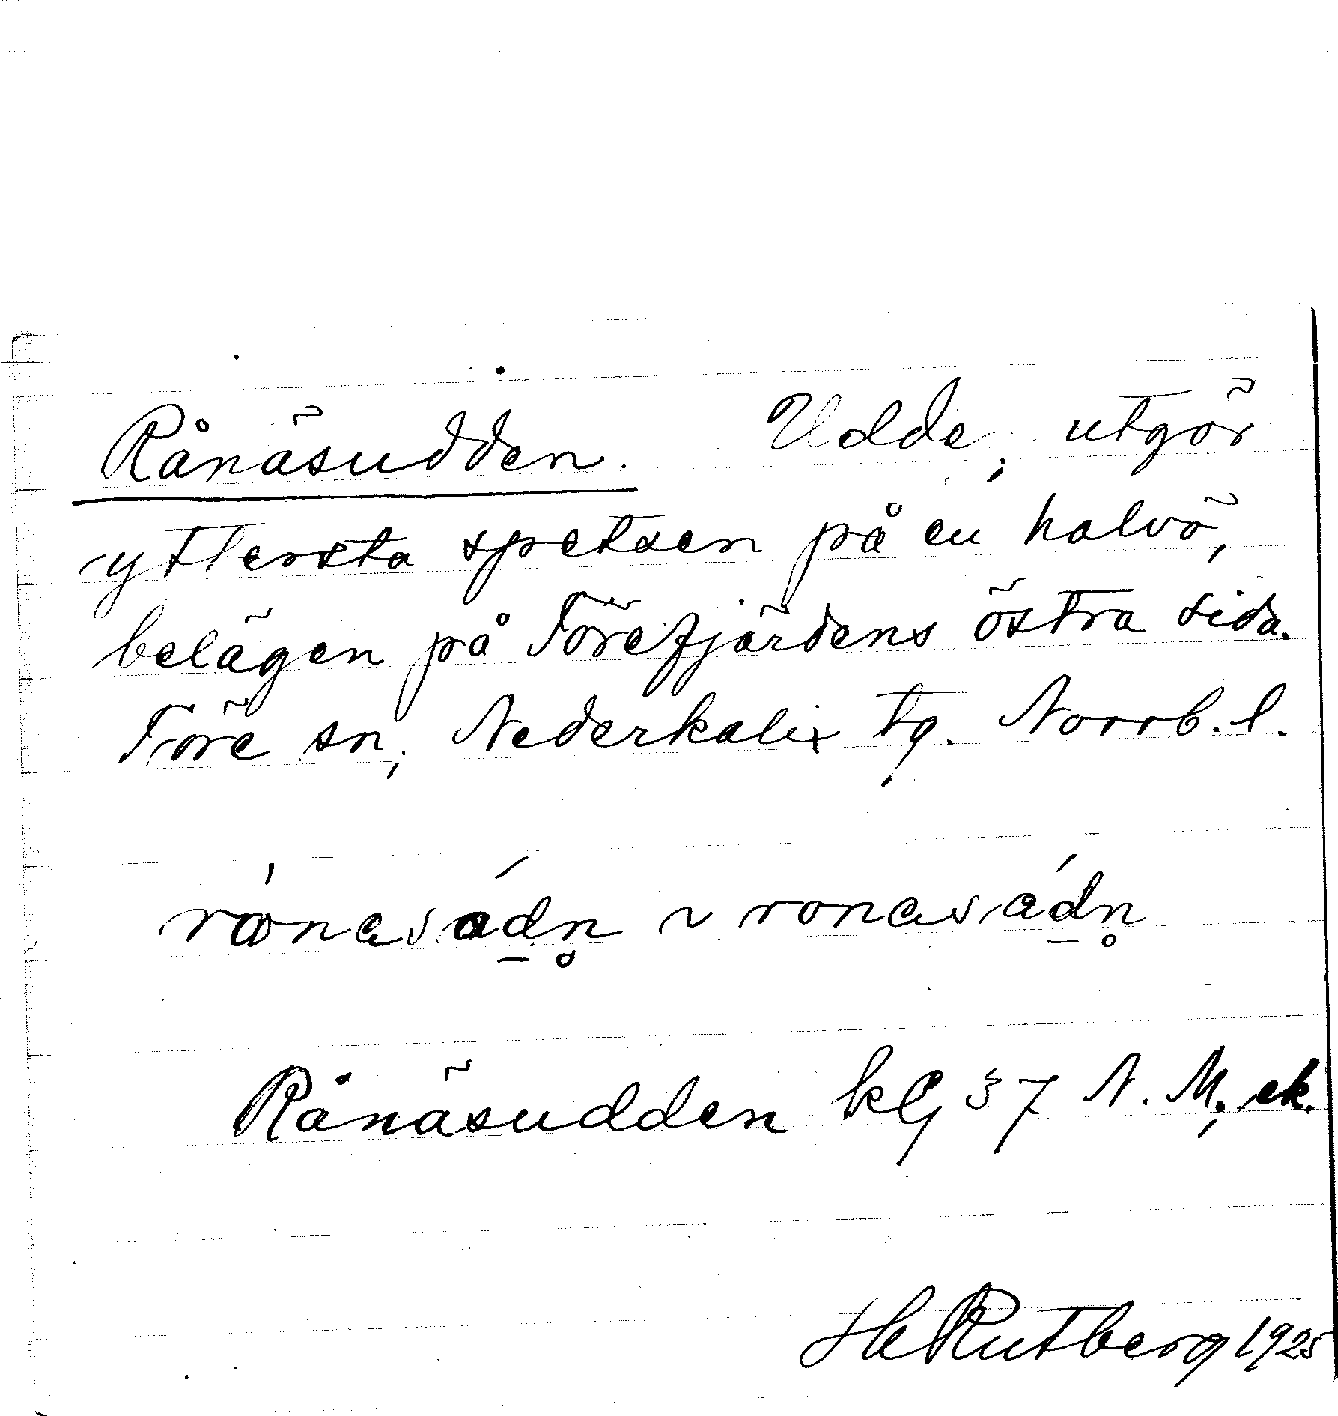 Rånäsudden. Udde, utgör
yttersta spetsen på en halvö,
belägen på Törefjärdens östra sida.
Töre sn, Nederkalix tg. Norrb. l.
~
Rånäsudden kg 37 N. M, ek.
H Rutberg 1925